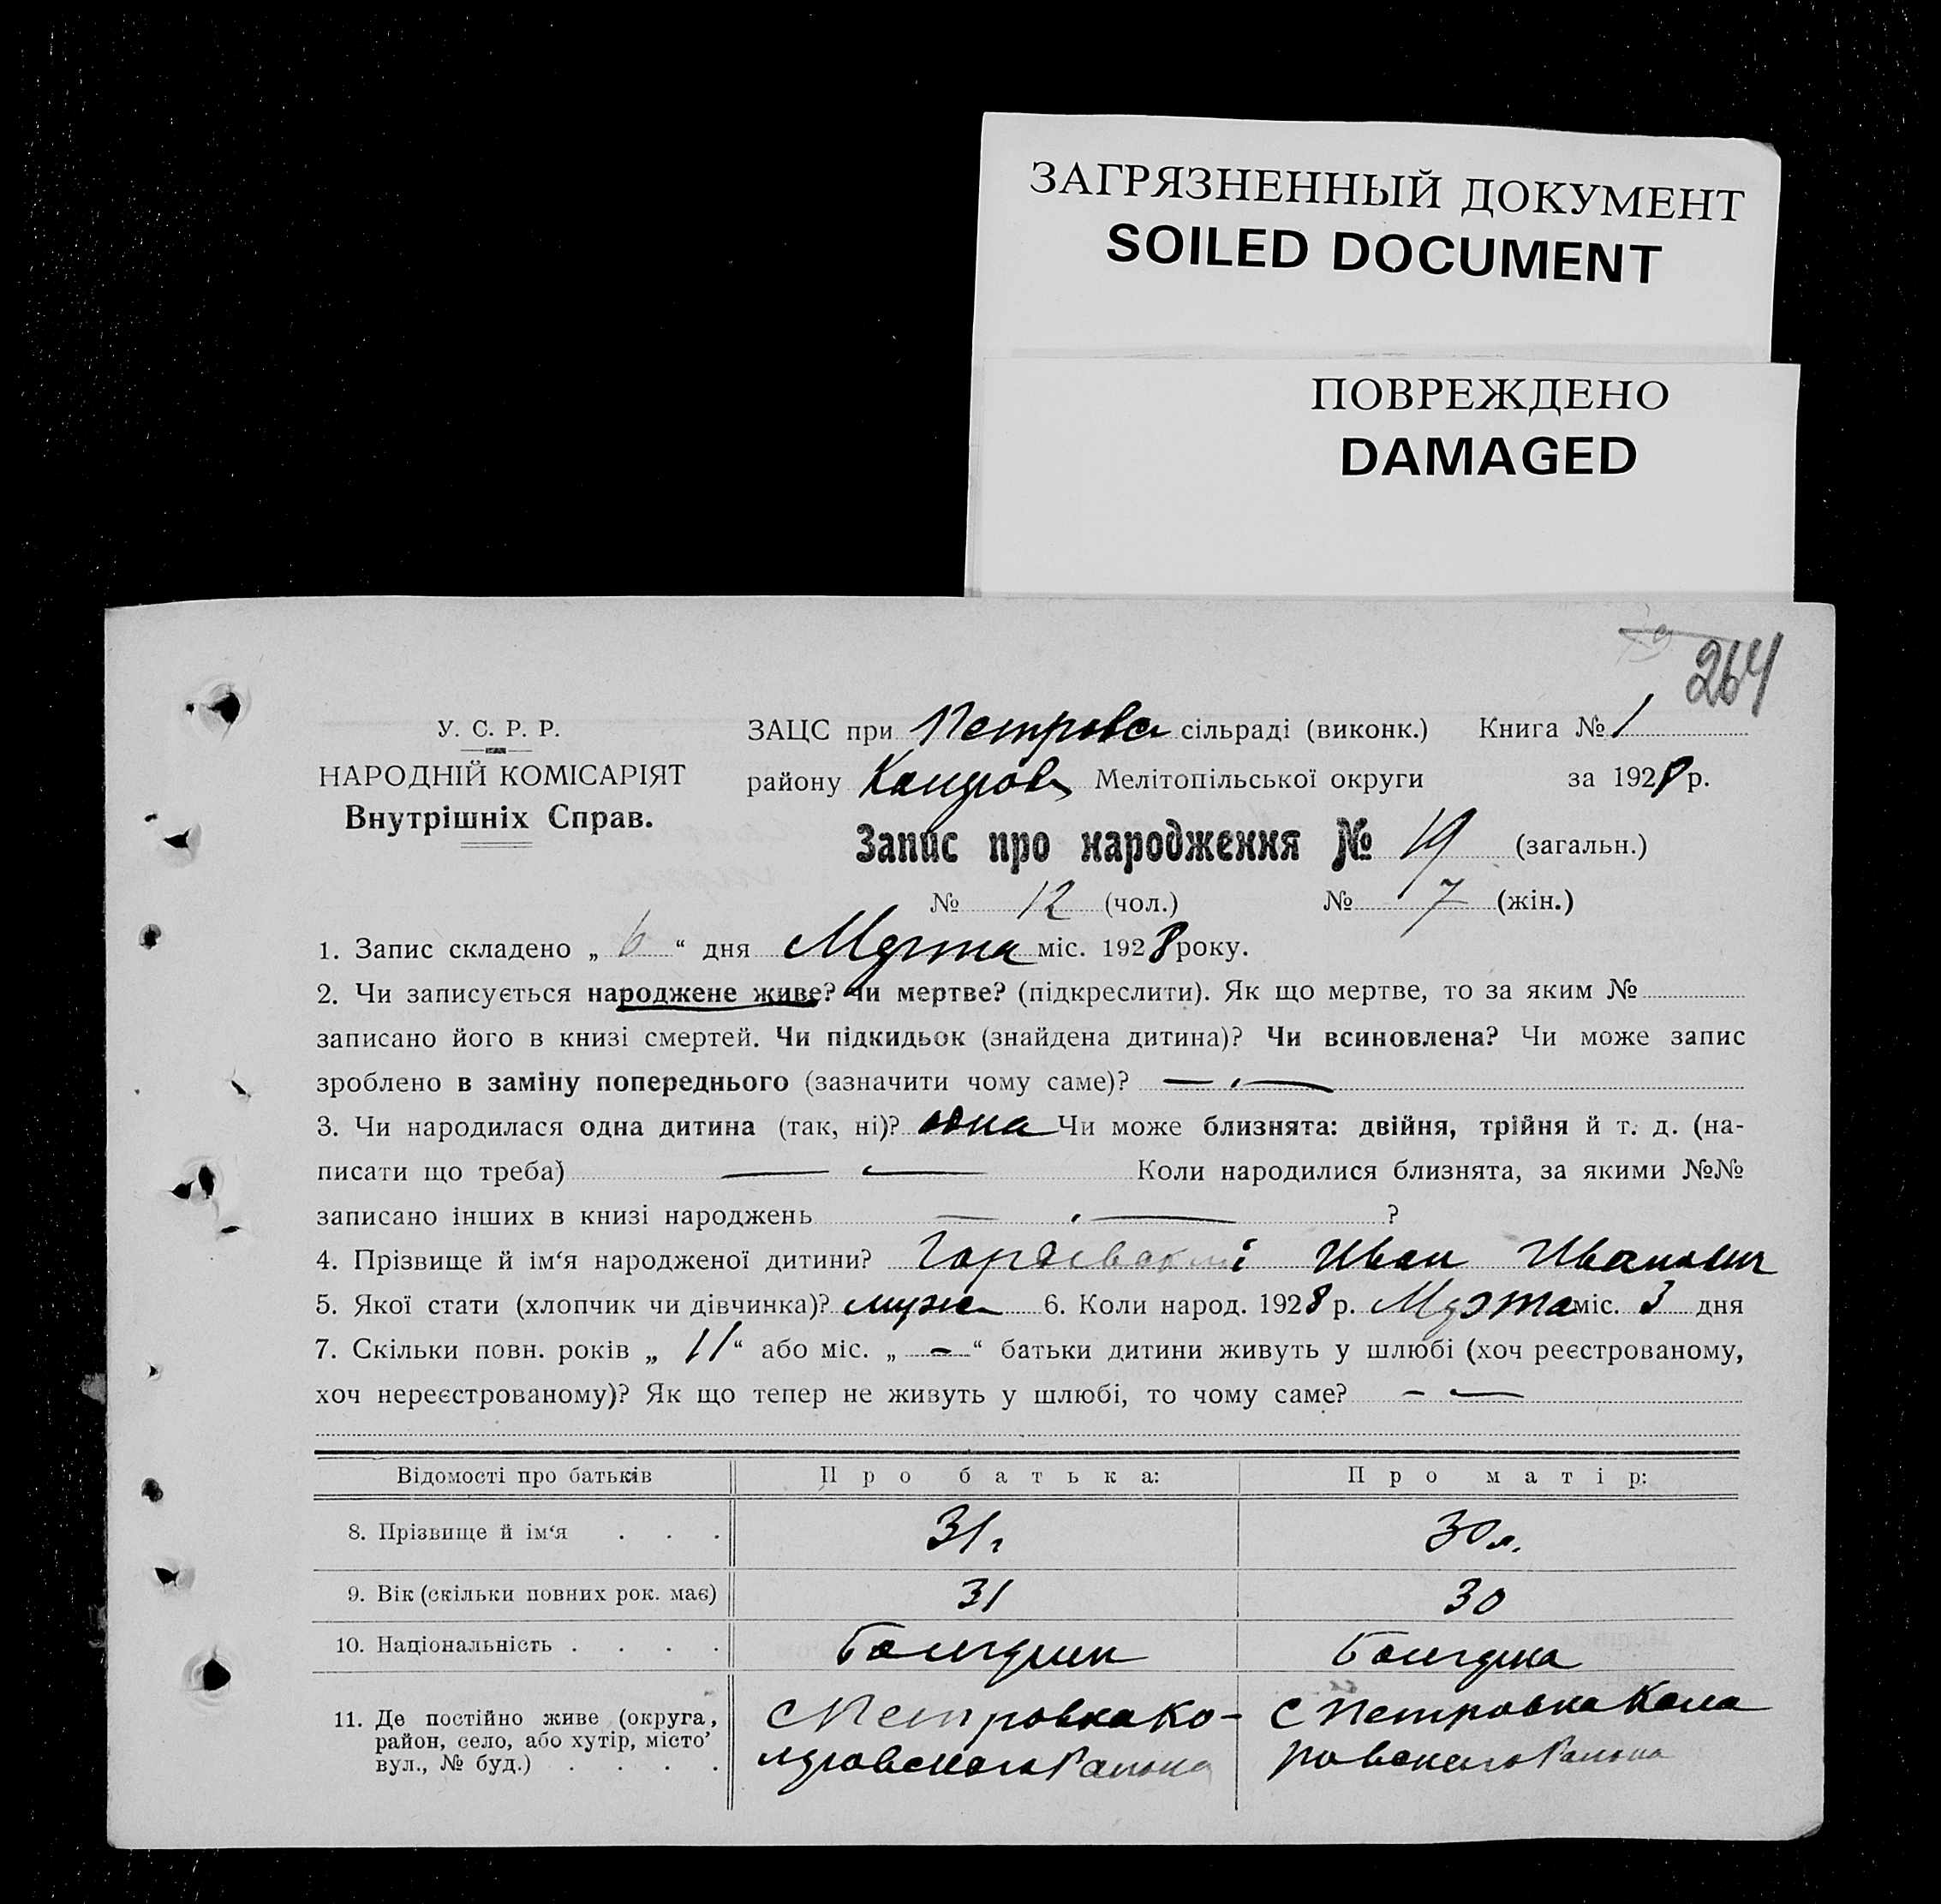 ЗАГРЯЗНЕННЫЙ ДОКУМЕНТ
SOILED DOCUMENT
ПОВРЕЖДЕНО
DAMAGED
264
У. С. Р. Р.
НАРОДНІЙ КОМІСАРІЯТ
Внутрішніх Справ.
ЗАЦС при Петровс сільраді (виконк.) Книга № 1
району Мелітопільської округи за 1928 р.
Запис про народження № 19 (загальн.)
№ 12 (чол.) № 7 (жін.)
1. Запис складено „ 6 “ дня Марта міс. 1928 року.
2. Чи записується народжене живе? чи мертве? (підкреслити). Як що мертве, то за яким №
записано його в книзі смертей. Чи підкидьок (знайдена дитина)? Чи всиновлена? Чи може запис
зроблено в заміну попереднього (зазначити чому саме)? —
3. Чи народилася одна дитина (так, ні)? одна Чи може близнята: двійня, трійня й т. д. (на-
писати що треба) — — Коли народилися близнята, за якими №№
записано інших в книзі народжень — — ?
4. Прізвище й ім‘я народженої дитини? Иван Иванович
5. Якої стати (хлопчик чи дівчинка)? муж 6. Коли народ. 1928 р. Марта міс. 3 дня
7. Скільки повн. років „ 11 “ або міс. „ — “ батьки дитини живуть у шлюбі (хоч реєстрованому,
хоч нереєстрованому)? Як що тепер не живуть у шлюбі, то чому саме? — —
Відомості про батьків Про батька: Про матір:
8. Прізвище й ім‘я . . . 31 г 30 л.
9. Вік (скільки повних рок. має) 31 30
10. Національність . . . . Болгарин Болгарка
11. Де постійно живе (округа, район, село, або хутір, місто, вул., № буд.) . . . .
С Петровка Ко-
ларовского Района
С Петровка Кола
ровского Района